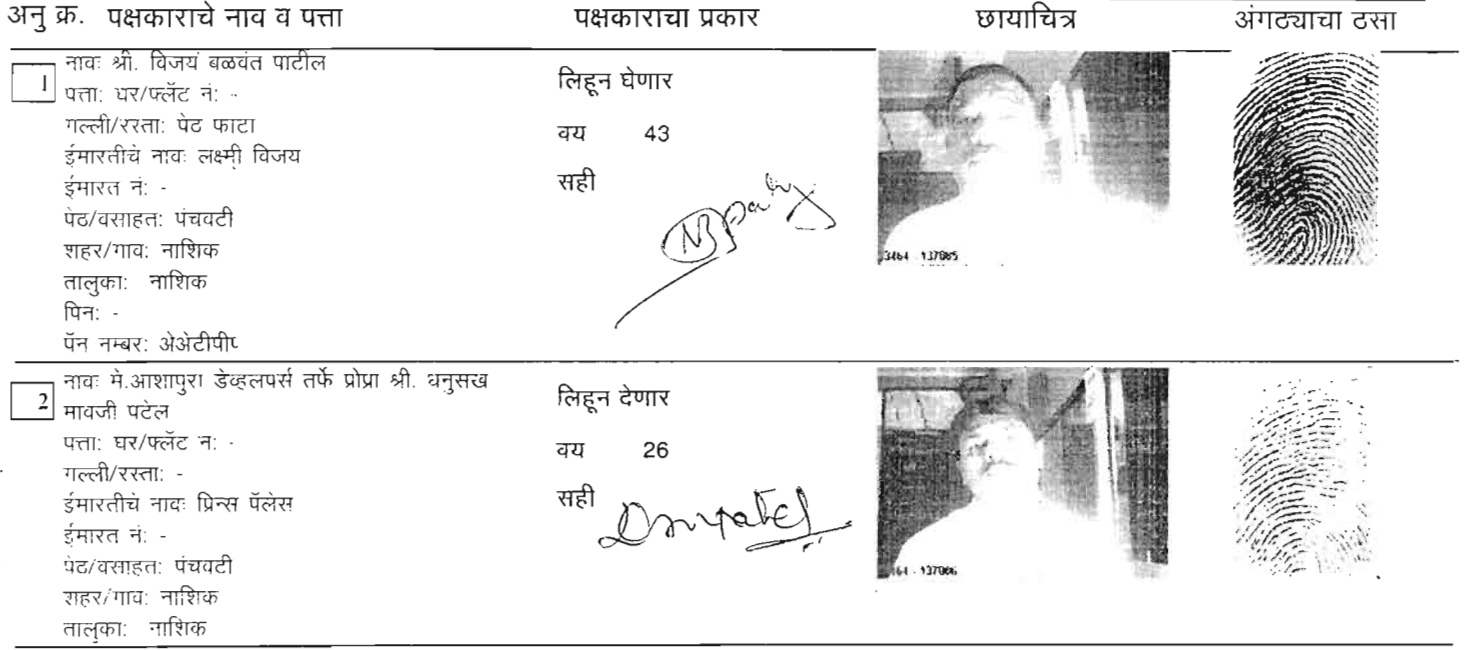 अनु क्र. पक्षकाराचे नाव व पत्ता पक्षकाराचा प्रकार छायाचित्र अंगठ्याचा ठसा
1
नावः श्री. विजय बळवंत पाटील
पत्ता: घर/फ्लॅट नं: -
गल्ली/रस्ता: पेठ फाटा
ईमारतीचे नावः लक्ष्मी विजय
ईमारत नं: -
पेठ/वसाहत: पंचवटी
शहर/गाव: नाशिक
तालुका: नाशिक
पिन: -
पॅन नम्बर: अेअेटीपीए
लिहून घेणार
वय 43
सही
3464 - 137085
2
नावः मे.आशापुरा डेव्हलपर्स तर्फे प्रोप्रा श्री. धनुसख
मावजी पटेल
पत्ता: घर/फ्लॅट नं: -
गल्ली/रस्ता: -
ईमारतीचे नावः प्रिन्स पॅलेस
ईमारत नं: -
पेठ/वसाहत: पंचवटी
शहर/गाव: नाशिक
तालुका: नाशिक
लिहून देणार
वय 26
सही
137086